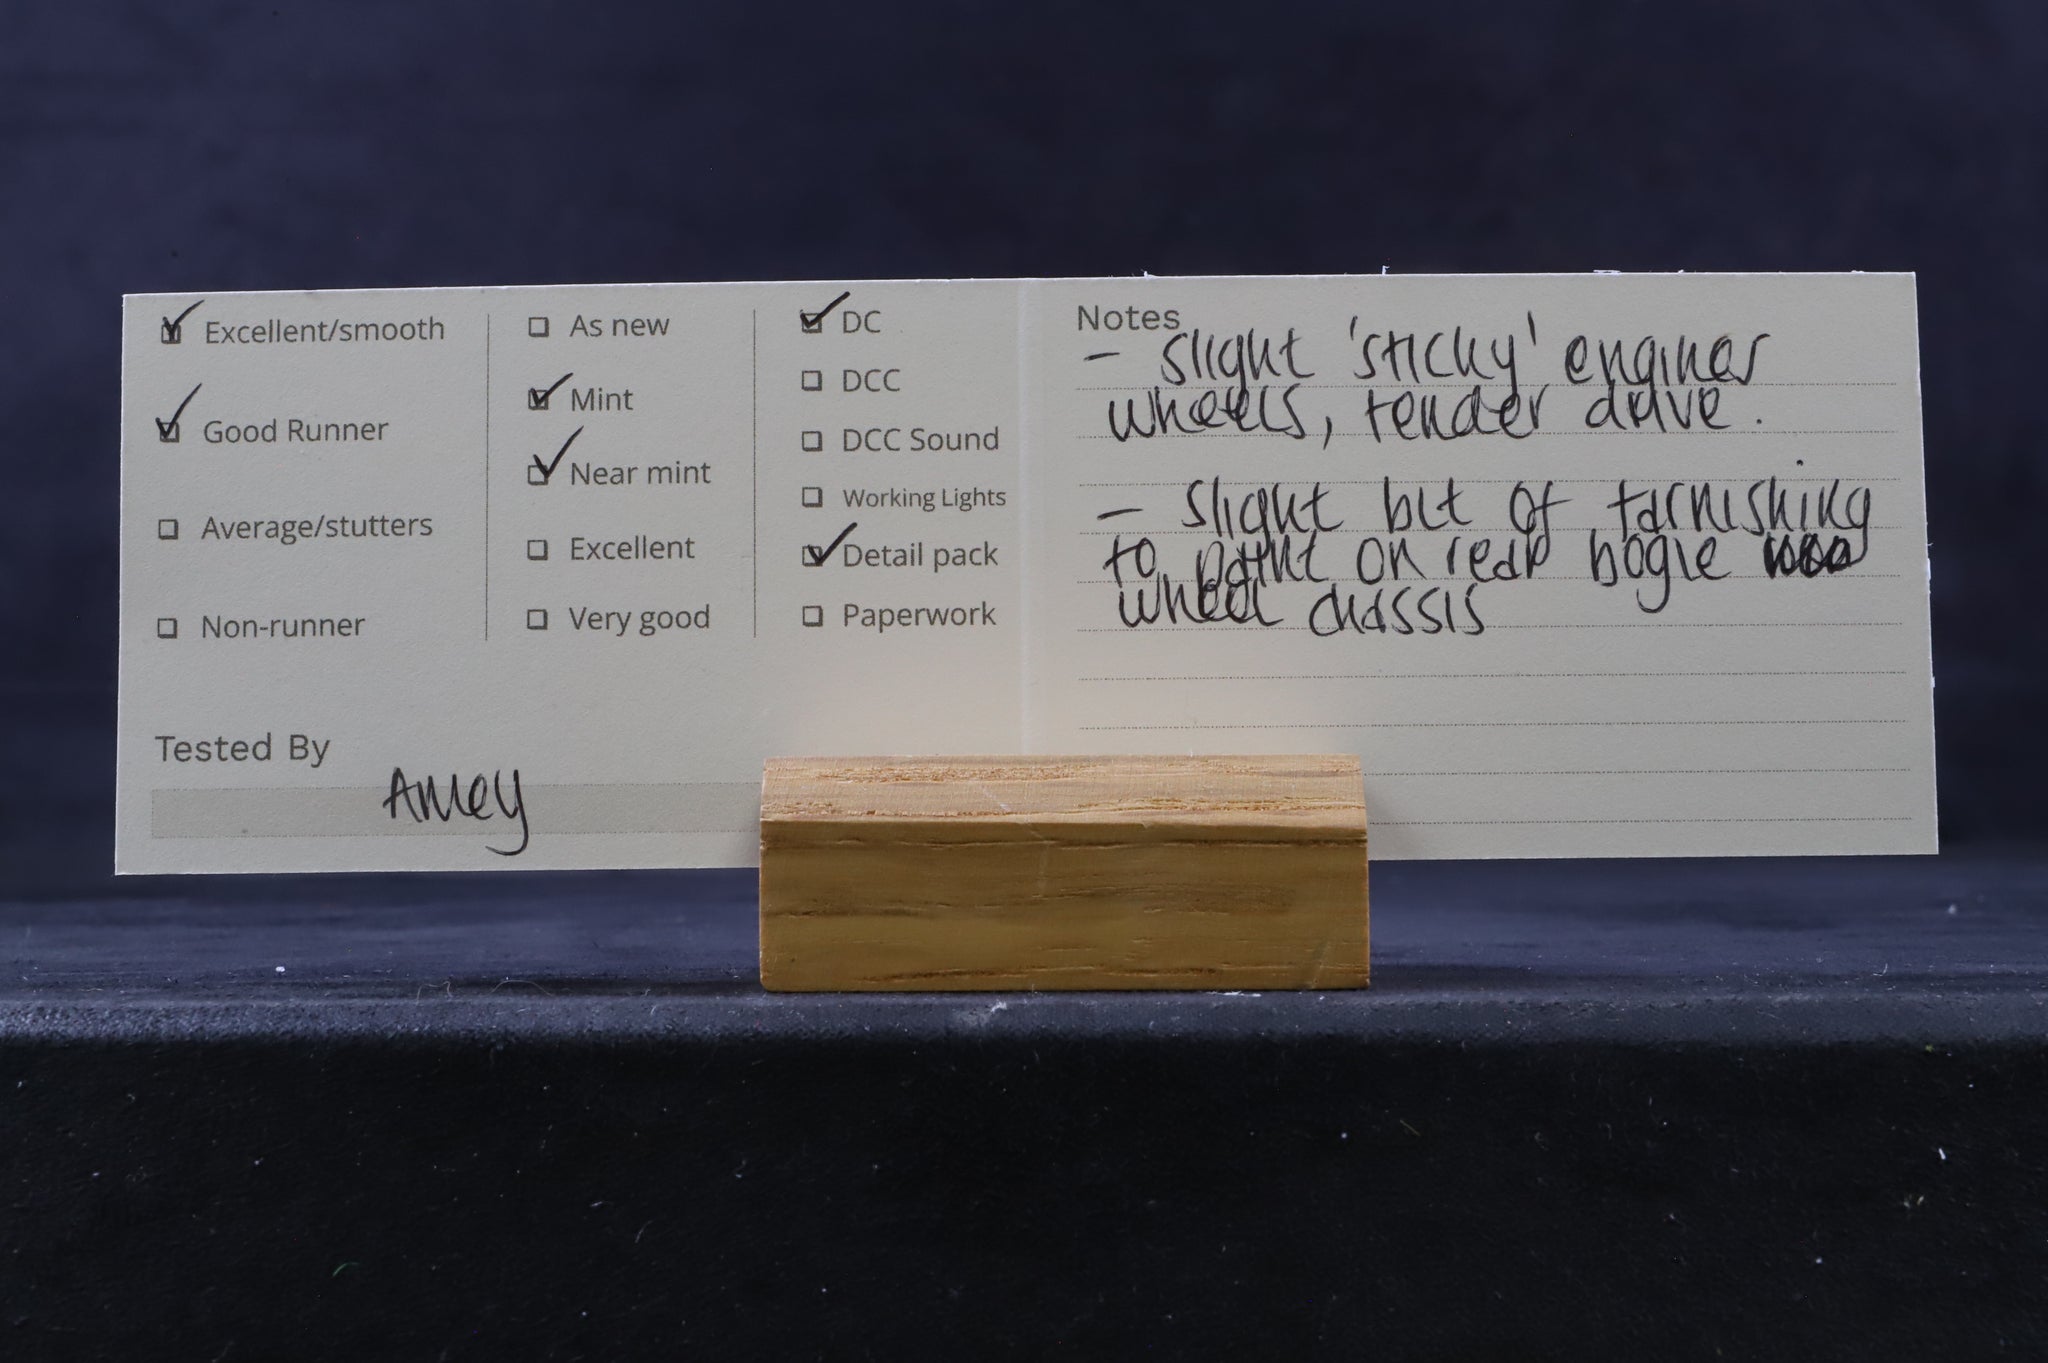 Excellent/smooth
Good Runner
Average/stutters
Non-runner
As new
Mint
Near mint
Excellent
Very good
DC
DCC
DCC Sound
Working Lights
Detail pack
Paperwork
Tested By
Amey
Notes
- slight 'sticky' engines
wheels, tender drive.
- slight bit of tarnishing
to paint on rear bogie
wheel chassis